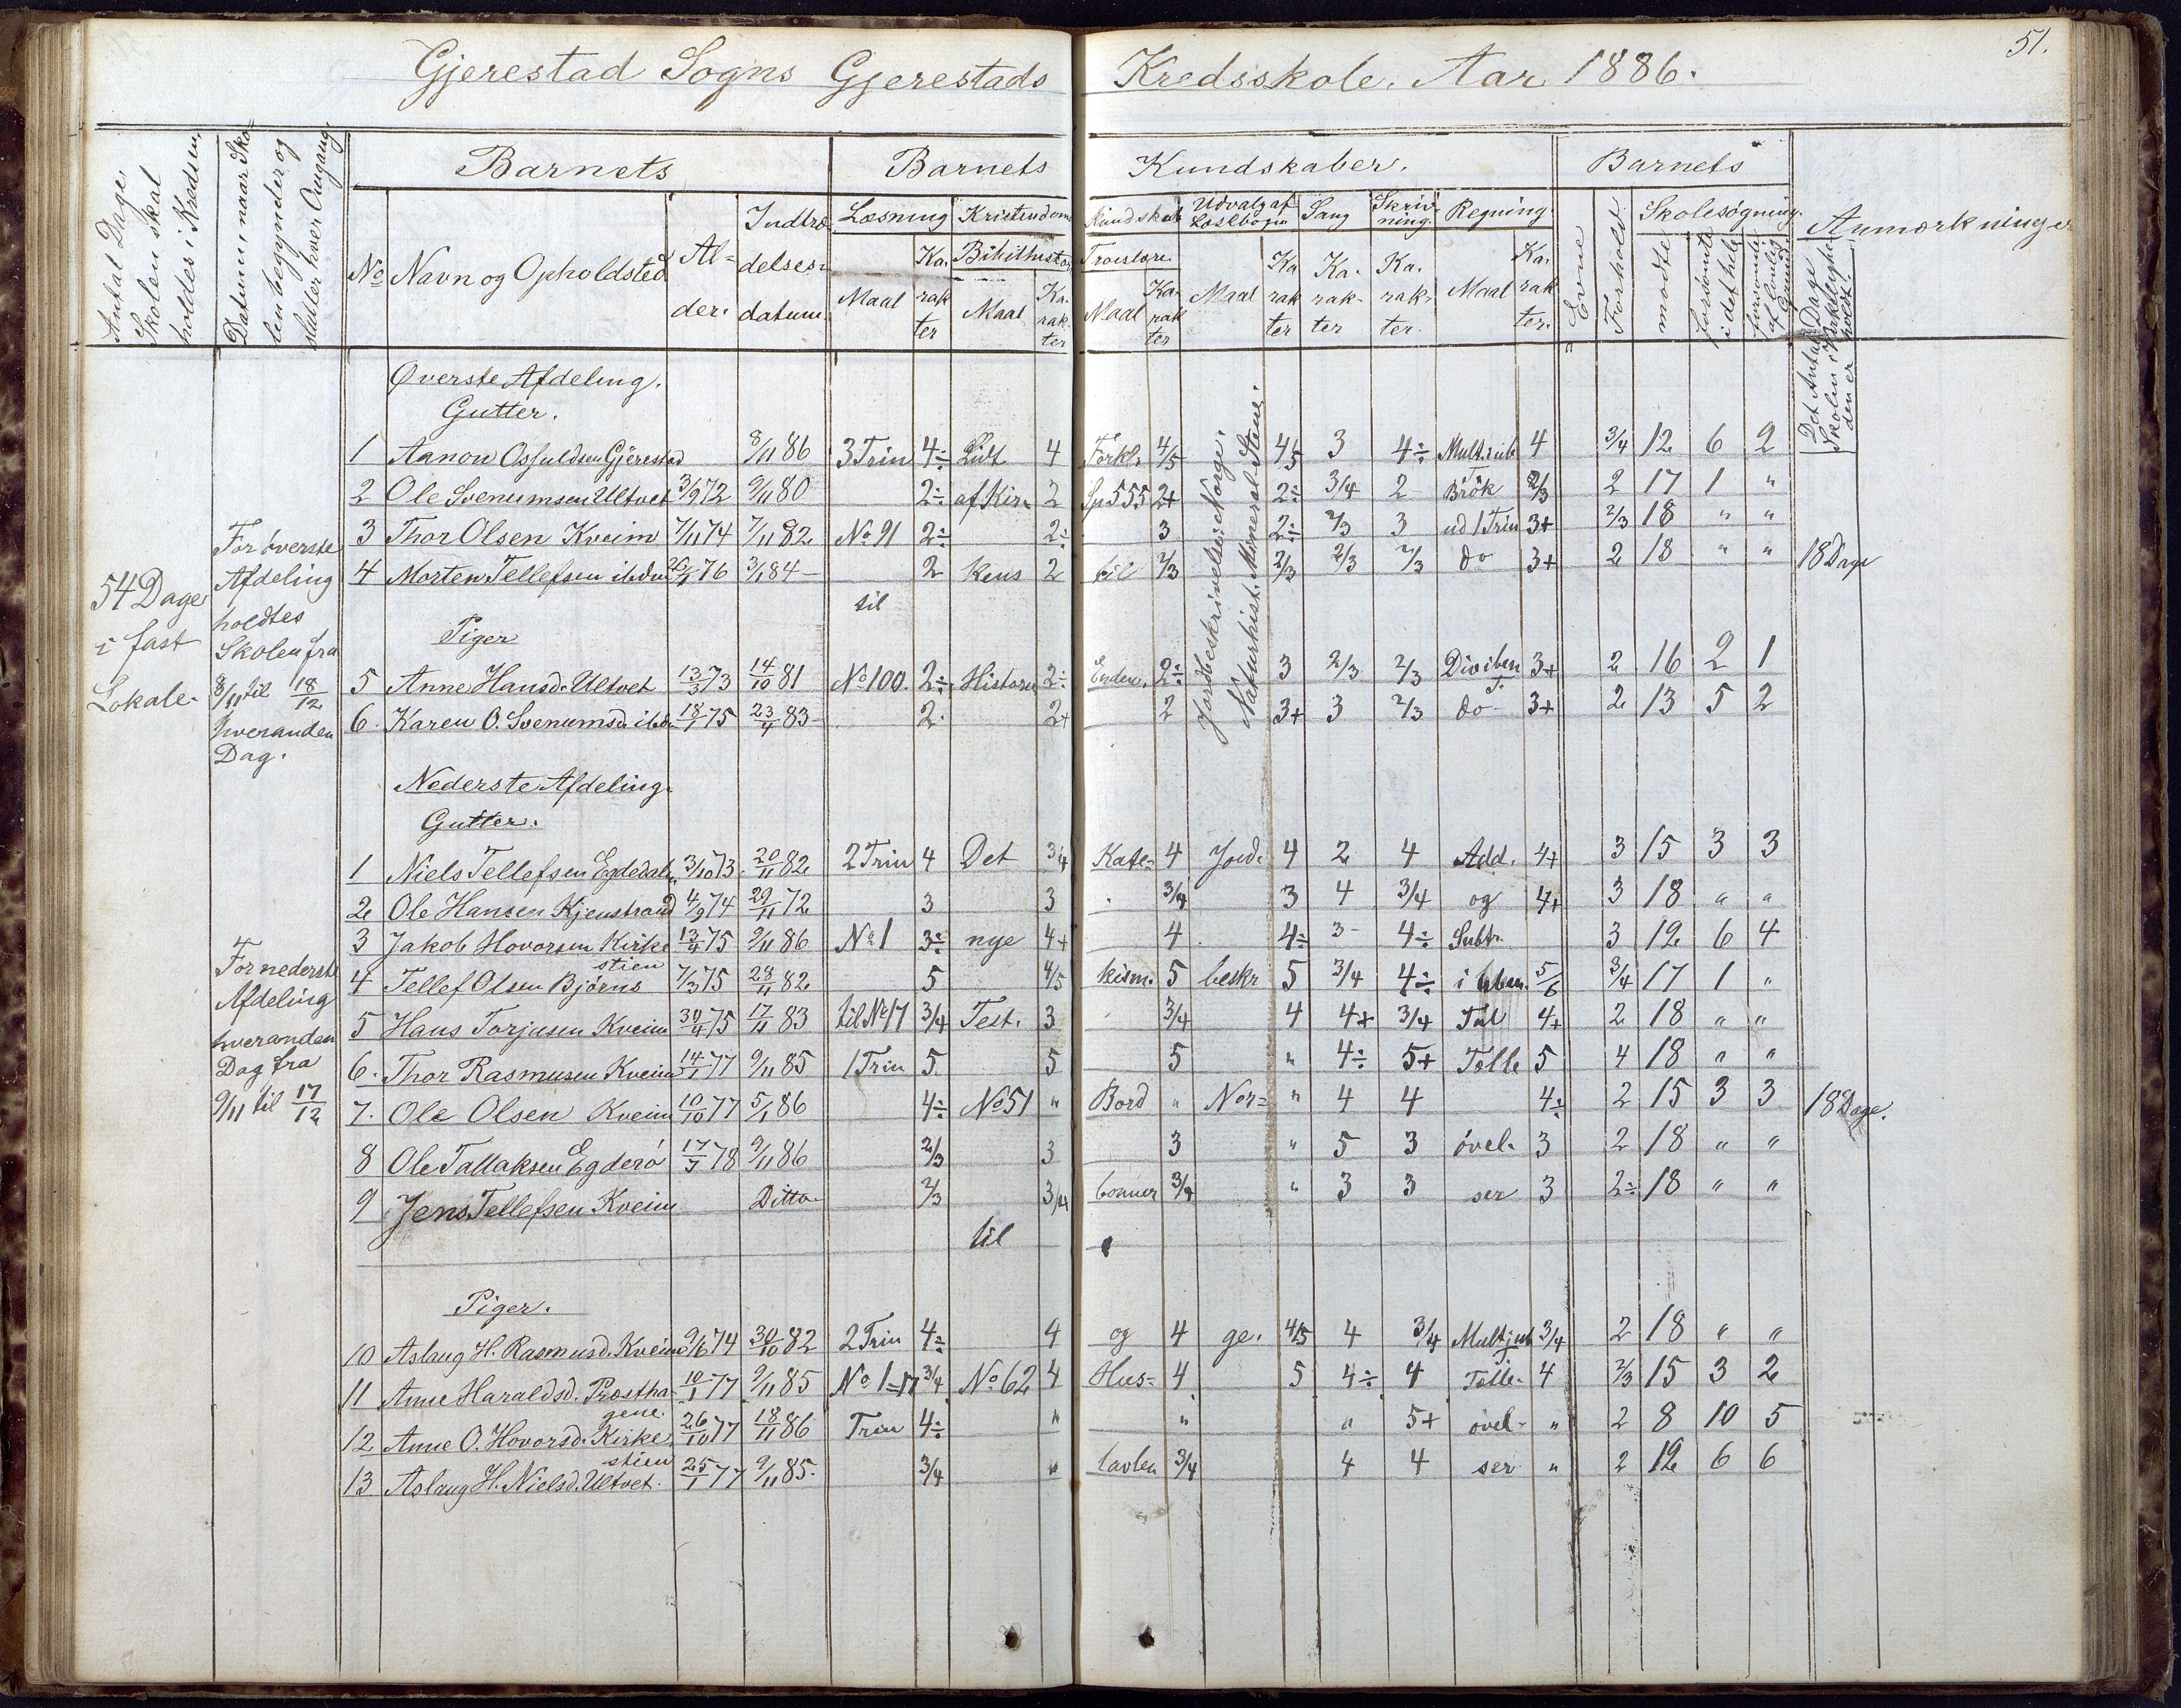 51.
Gjerestad Sogns Gjerestads Kredsskole. Aar 1886.
Antal Dage, Skolen skal holdes i Kredsen,
Datum, naar Skolen begynder og slutter hver Omgang
Barnets
Barnets Kundskaber.
Barnets
Anmærkninger
No Navn og Opholdsted
Alder.
Indtrædelsesdatum.
Læsning
Maal
Karakter
Kristendoms kundskab
Bibelhistorie
Maal
Karakter
Troeslære
Maal
Karakter
Udvalg af Læsebogen
Maal
Karakter
Sang
Karakter
Skrivning.
Karakter.
Regning
Maal
Karakter.
Evne
Forhold
Skolesøgning.
mødte
forsømte i det hele
forsømte af lovlig Grund
Det Antal Dage Skolen i Virkeligheden er holdt.
54 Dage i fast Lokale.
For øverste Afdeling holdtes Skolen fra 8/11 til 18/12 hveranden Dag.
Jordbeskrivelse: Norge.
Naturhist. Mineral-Stene.
Øverste Afdeling.
Gutter.
1 Aanon Osfuldsen Gjerestad 8/11 86 3 Trin 4÷ Lidt 4 Forkl. 4/5 4/5 3 4÷ Mult. sub 4 3/4 12 6 2
2 Ole Svenumsen Ultvet 3/9 72 9/11 80 2÷ af Kir- 2 Sp 555 2+ 2÷ 3/4 2 Brøk 2/3 2 17 1 "
3 Thor Olsen Kveim 7/11 74 7/11 82 No 91 2÷ 2÷ 3 2÷ 2/3 3 ud 1 Trin 3+ 2/3 18 " "
4 Morten Tellefsen ibdm 76 3/1 84 2 kens 2 til 2/3 2/3 2/3 2/3 do 3+ 2 18 " " 18 Dage
til
Piger
5 Anne Hansd. Ultvet 13/3 73 14/10 81 No 100. 2÷ Historie 2÷ Enden. 2÷ 3 2/3 2/3 Div. i ben. T. 3+ 2 16 2 1
6. Karen O. Svenumsd. ibdm 18/1 75 23/4 83 2. 2+ 2 3+ 3 2/3 do 3+ 2 13 5 2
Nederste Afdeling.
Gutter.
For nederste Afdeling hveranden Dag fra 9/11 til 17/12
1 Niels Tellefsen Egdedalen 3/10 73 20/11 82 2 Trin 4 Det 3/4 Kate- 4 Jord- 4 2 4 Add. 4+ 3 15 3 3
2 Ole Hansen Kjenstrand 4/9 74 29/11 72 3 3 3/4 3 4 3/4 og 4+ 3 18 " "
3 Jakob Hovorsen Kirkestien 13/4 75 9/11 86 No 1 3÷ nye 4+ 4 4÷ 3- 4÷ Subtr. 3 12 6 4
4 Tellef Olsen Bjørns 7/3 75 28/11 82 5 4/5 kism. 5 beskr 5 3/4 4÷ i uben. 5/6 3/4 17 1 "
5 Hans Torjusen Kveim 30/4 75 17/11 83 til No 17 3/4 Test. 3 3/4 4 4+ 3/4 Tal 4+ 2 18 " "
6. Thor Rasmusen Kveim 14/1 77 9/11 85 1 Trin 5 5 5 " 4÷ 5+ Tælle 5 4 18 " "
7. Ole Olsen Kveim 10/10 77 5/1 86 4÷ No 51 " Bord " Nor- " 4 4 4÷ 2 15 3 3 18 Dage.
8 Ole Tallaksen Egderø 17/7 78 9/11 86 2/3 3 3 " 5 3 øvel- 3 2 18 " "
9 Jens Tellefsen Kveim Ditto 2/3 3/4 bønner 3/4 " 3 3 ser 3 2÷ 18 " "
til
Piger.
10 Aslaug H. Rasmusd. Kveim 9/6 74 30/10 82 2 Trin 4÷ 4 og 4 ge. 4/5 4 3/4 Mult. i ub. T. 3/4 2 18 " "
11 Anne Haraldsd. Præsthagene. 10/1 77 9/11 85 No 1-17 3/4 No 62 4 Hus- 4 5 4÷ 4 Tælle- 4 2/3 15 3 2
12 Anne O. Hovorsd. Kirkestien 26/10 77 18/11 86 Trin 4÷ " " " 5+ øvel- " 2 8 10 5
13 Aslaug H. Nielsd. Ultvet. 25/1 77 9/11 85. 3/4 " tavlen 3/4 4 4 ser " 2 12 6 6